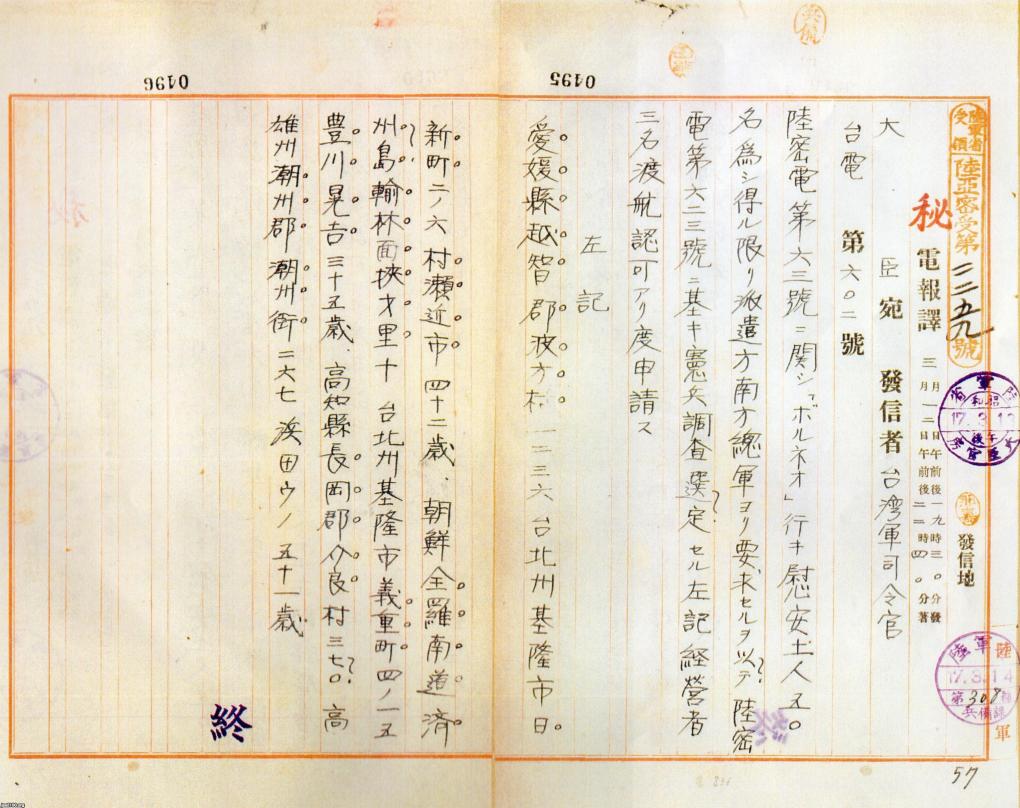 陸軍省受領
陸亞密受第二二五九號
秘 電報譯 三月一二日午前後一九時三〇分發
三月一二日午前後二二時四〇分著
發信地
大臣宛 發信者 台湾軍司令官
台電 第六〇二號
陸密電第六三號ニ関シ「ボルネオ」行キ慰安土人五〇
名為シ得ル限リ派遣方南方總軍ヨリ要求セルヲ以テ陸密
電第六二三號ニ基キ憲兵調査選定セル左記経営者
三名渡航認可アリ度申請ス
左記
愛媛縣越智郡波方村一二三六 台北州基隆市日
新町二ノ六 村瀬近市 四十二歳、朝鮮全羅南道済
州島翰林面挾才里十 台北州基隆市義重町四ノ一五
豊川晃吉 三十五歳、高知縣長岡郡介良村三七〇 高
雄州潮州郡潮州街二六七 浜田ウノ 五十一歳
終
0495
0496
17.3.13
陸軍 17.3.14 兵備課
軍
57